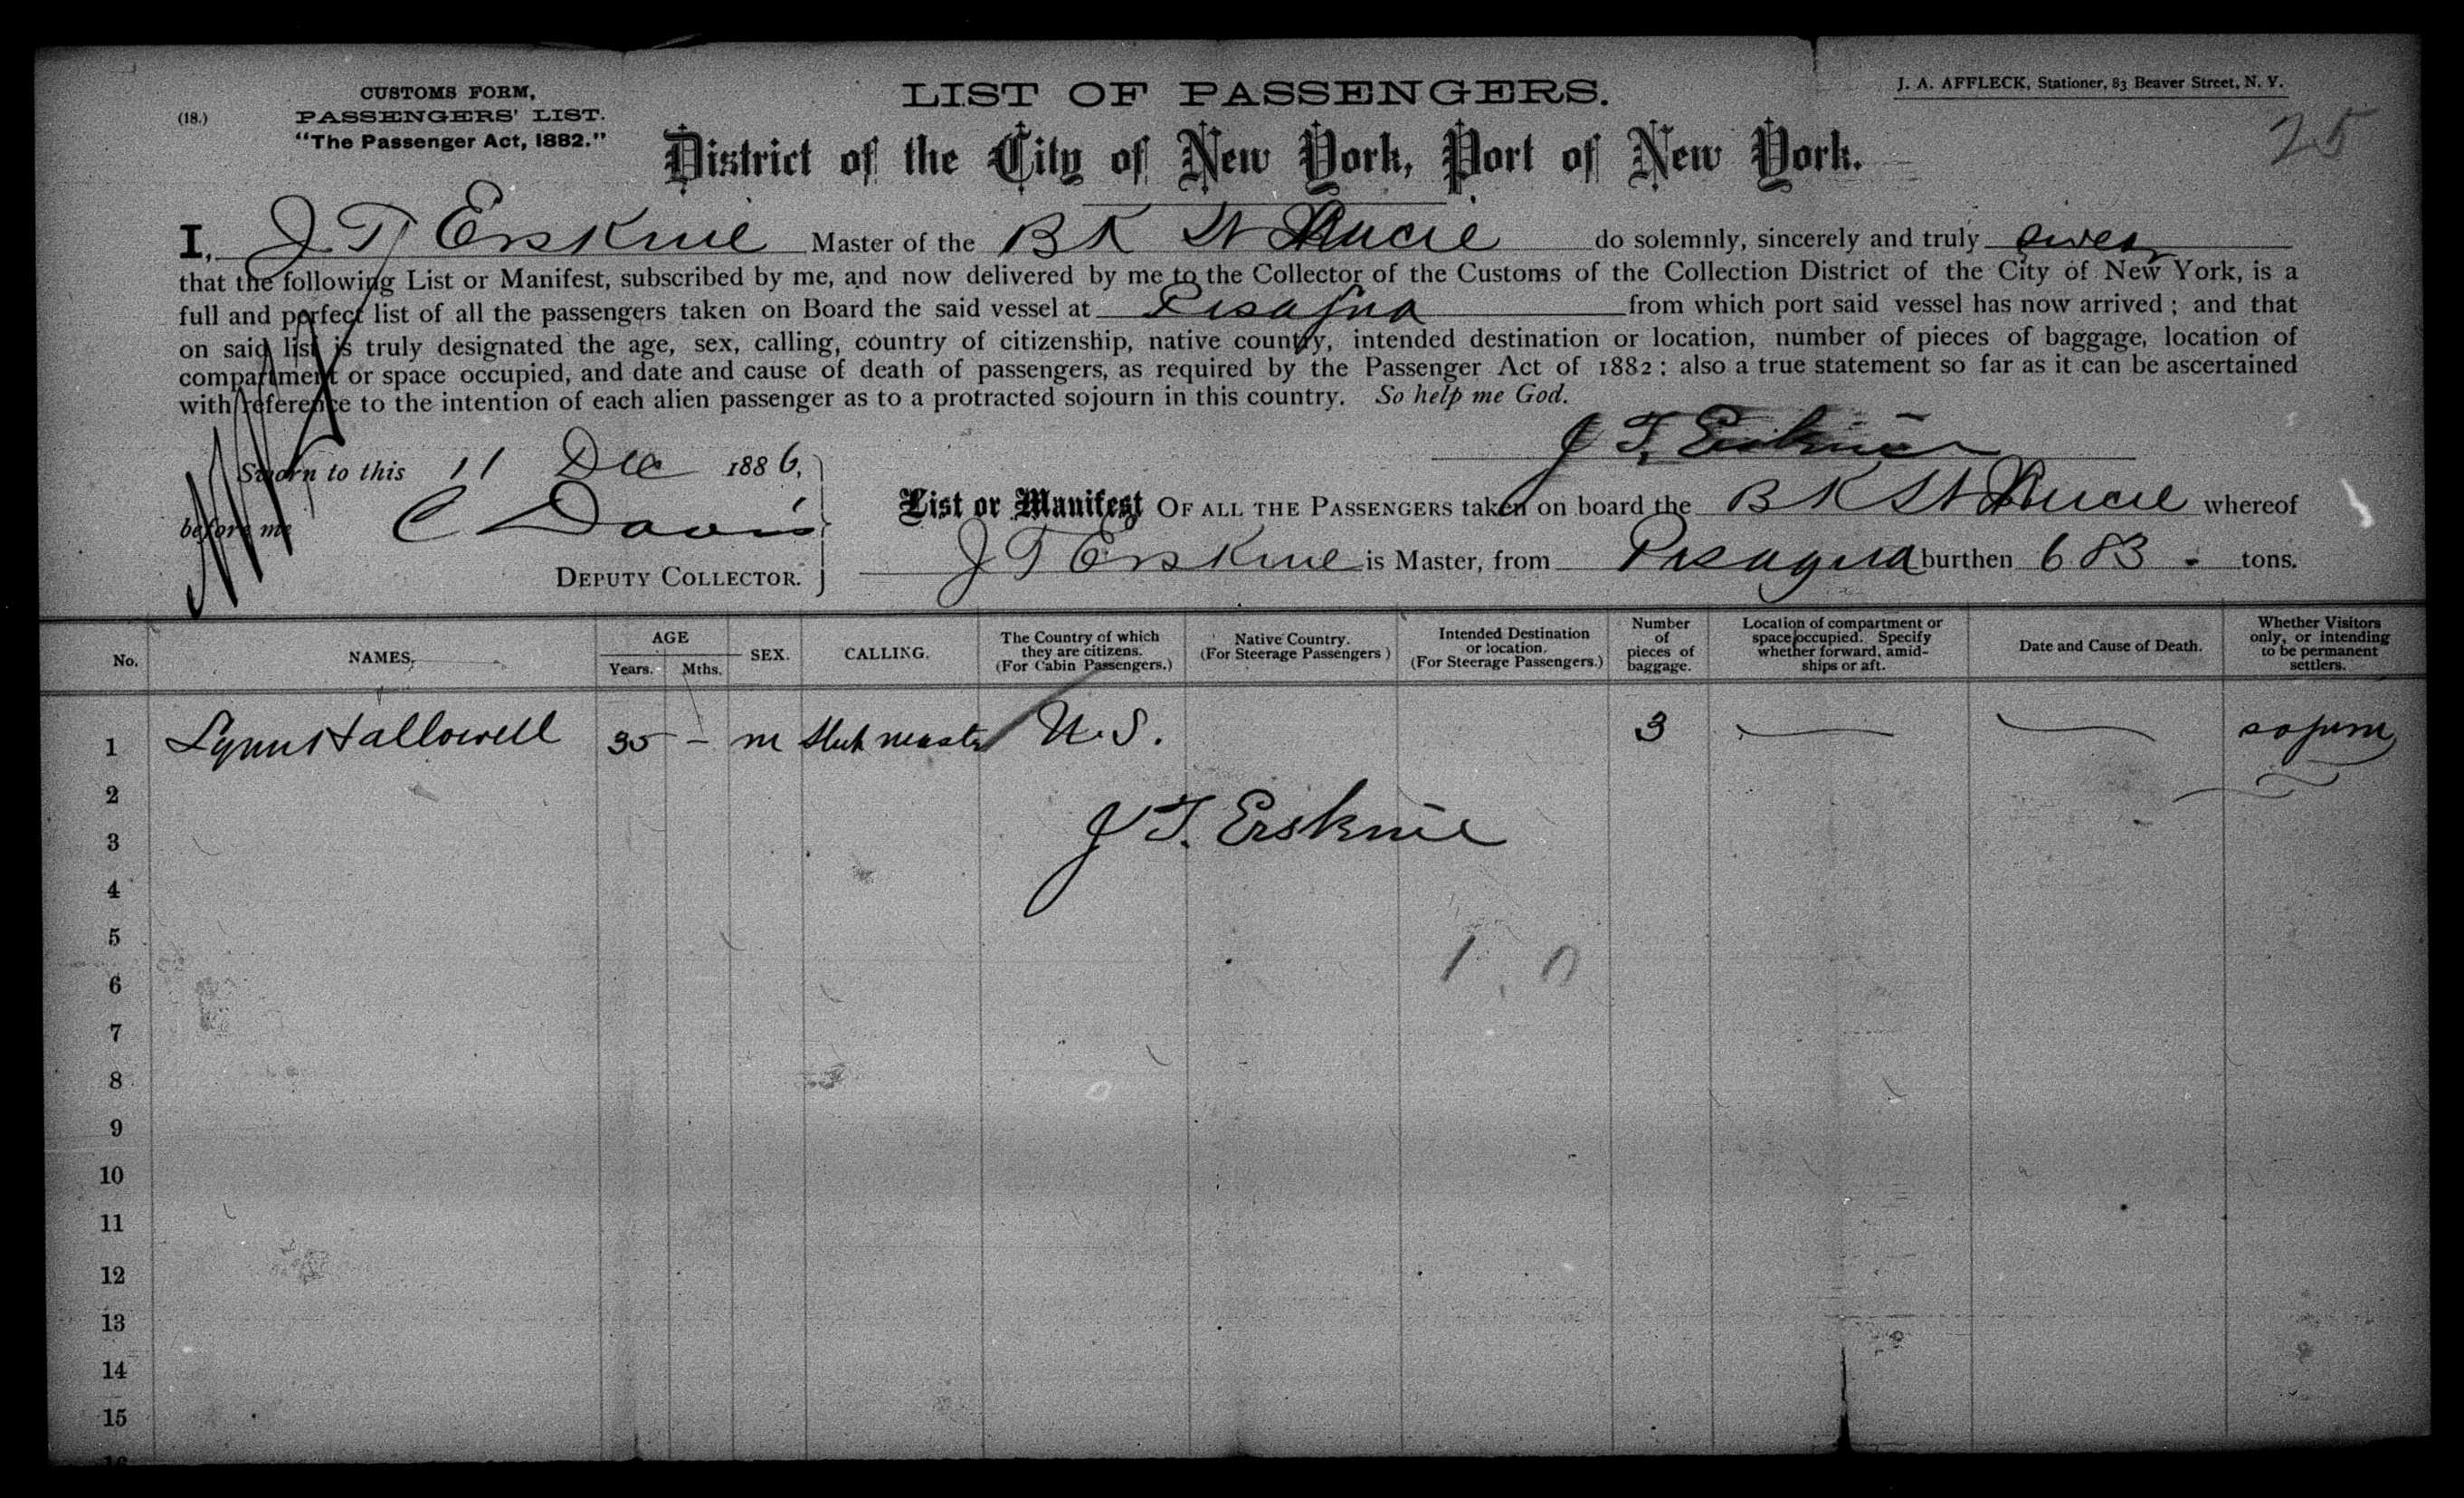 CUSTOMS FORM,
(18.) PASSENGERS' LIST.
"The Passenger Act, 1882."
LIST OF PASSENGERS.
J. A. AFFLECK, Stationer, 83 Beaver Street, N. Y.
25
District of the City of New York, Port of New York.
I, J T Erskine Master of the BK St Lucie do solemnly, sincerely and truly swear
that the following List or Manifest, subscribed by me, and now delivered by me to the Collector of the Customs of the Collection District of the City of New York, is a
full and perfect list of all the passengers taken on Board the said vessel at Pisagua from which port said vessel has now arrived; and that
on said list is truly designated the age, sex, calling, country of citizenship, native country, intended destination or location, number of pieces of baggage, location of
compartment or space occupied, and date and cause of death of passengers, as required by the Passenger Act of 1882: also a true statement so far as it can be ascertained
with reference to the intention of each alien passenger as to a protracted sojourn in this country. So help me God.
J T. Erskine
Sworn to this 11 Dec 1886,
before me C Davis
DEPUTY COLLECTOR.
List or Manifest OF ALL THE PASSENGERS taken on board the BK St Lucie whereof
J T Erskine is Master, from Pisagua burthen 683 tons.
No. NAMES. AGE Years. Mths. SEX. CALLING. The Country of which they are citizens. (For Cabin Passengers.) Native Country. (For Steerage Passengers) Intended Destination or location. (For Steerage Passengers.) Number of pieces of baggage. Location of compartment or space occupied. Specify whether forward, amidships or aft. Date and Cause of Death. Whether Visitors only, or intending to be permanent settlers.
1 Hallowell 35 – m master U.S. 3
2
3 J T. Erskine
4
5
6 1
7
8
9
10
11
12
13
14
15
16